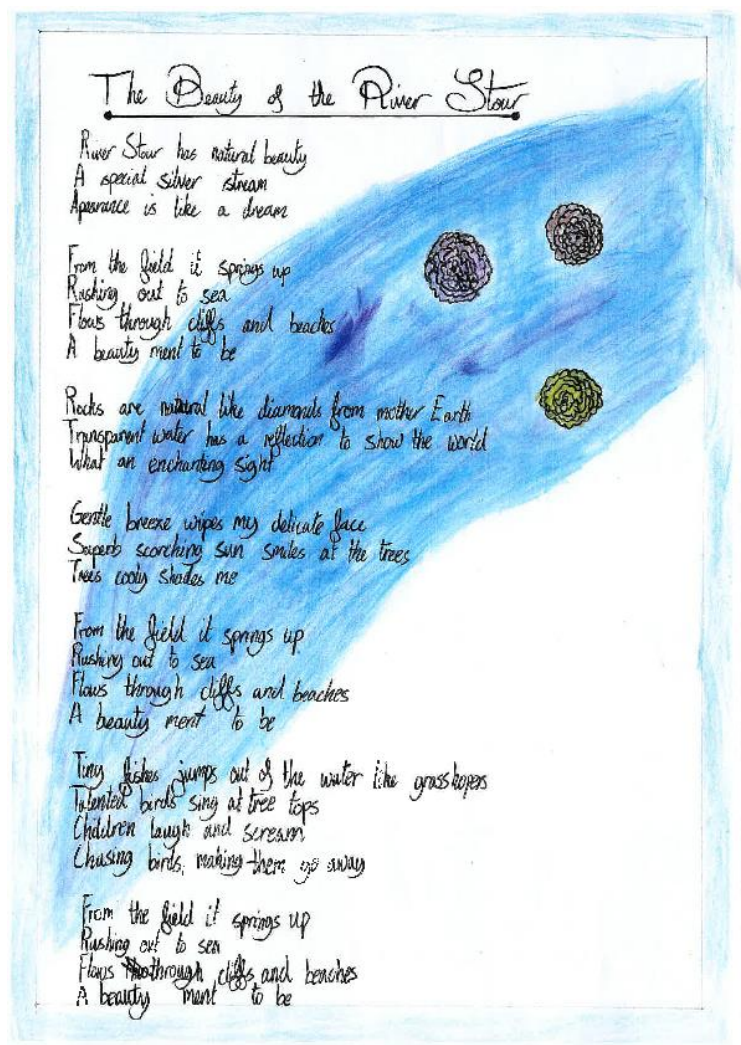 The Beauty of the River Stour
River Stour has natural beauty
A special silver stream
Apearance is like a dream
From the field it springs up
Rushing out to sea
Flows through cliffs and beaches
A beauty ment to be
Rocks are natural like diamonds from mother Earth
Transparent water has a reflection to show the world
What an enchanting sight
Gentle breeze wipes my delicate face
Superb scorching sun smiles at the trees
Trees cooly shades me
From the field it springs up
Rushing out to sea
Flows through cliffs and beaches
A beauty ment to be
Tiny fishes jumps out of the water like grasshopers
Talented birds sing at tree tops
Children laugh and scream
Chasing birds, making them go away
From the field it springs up
Rushing out to sea
Flows through cliffs and beaches
A beauty ment to be